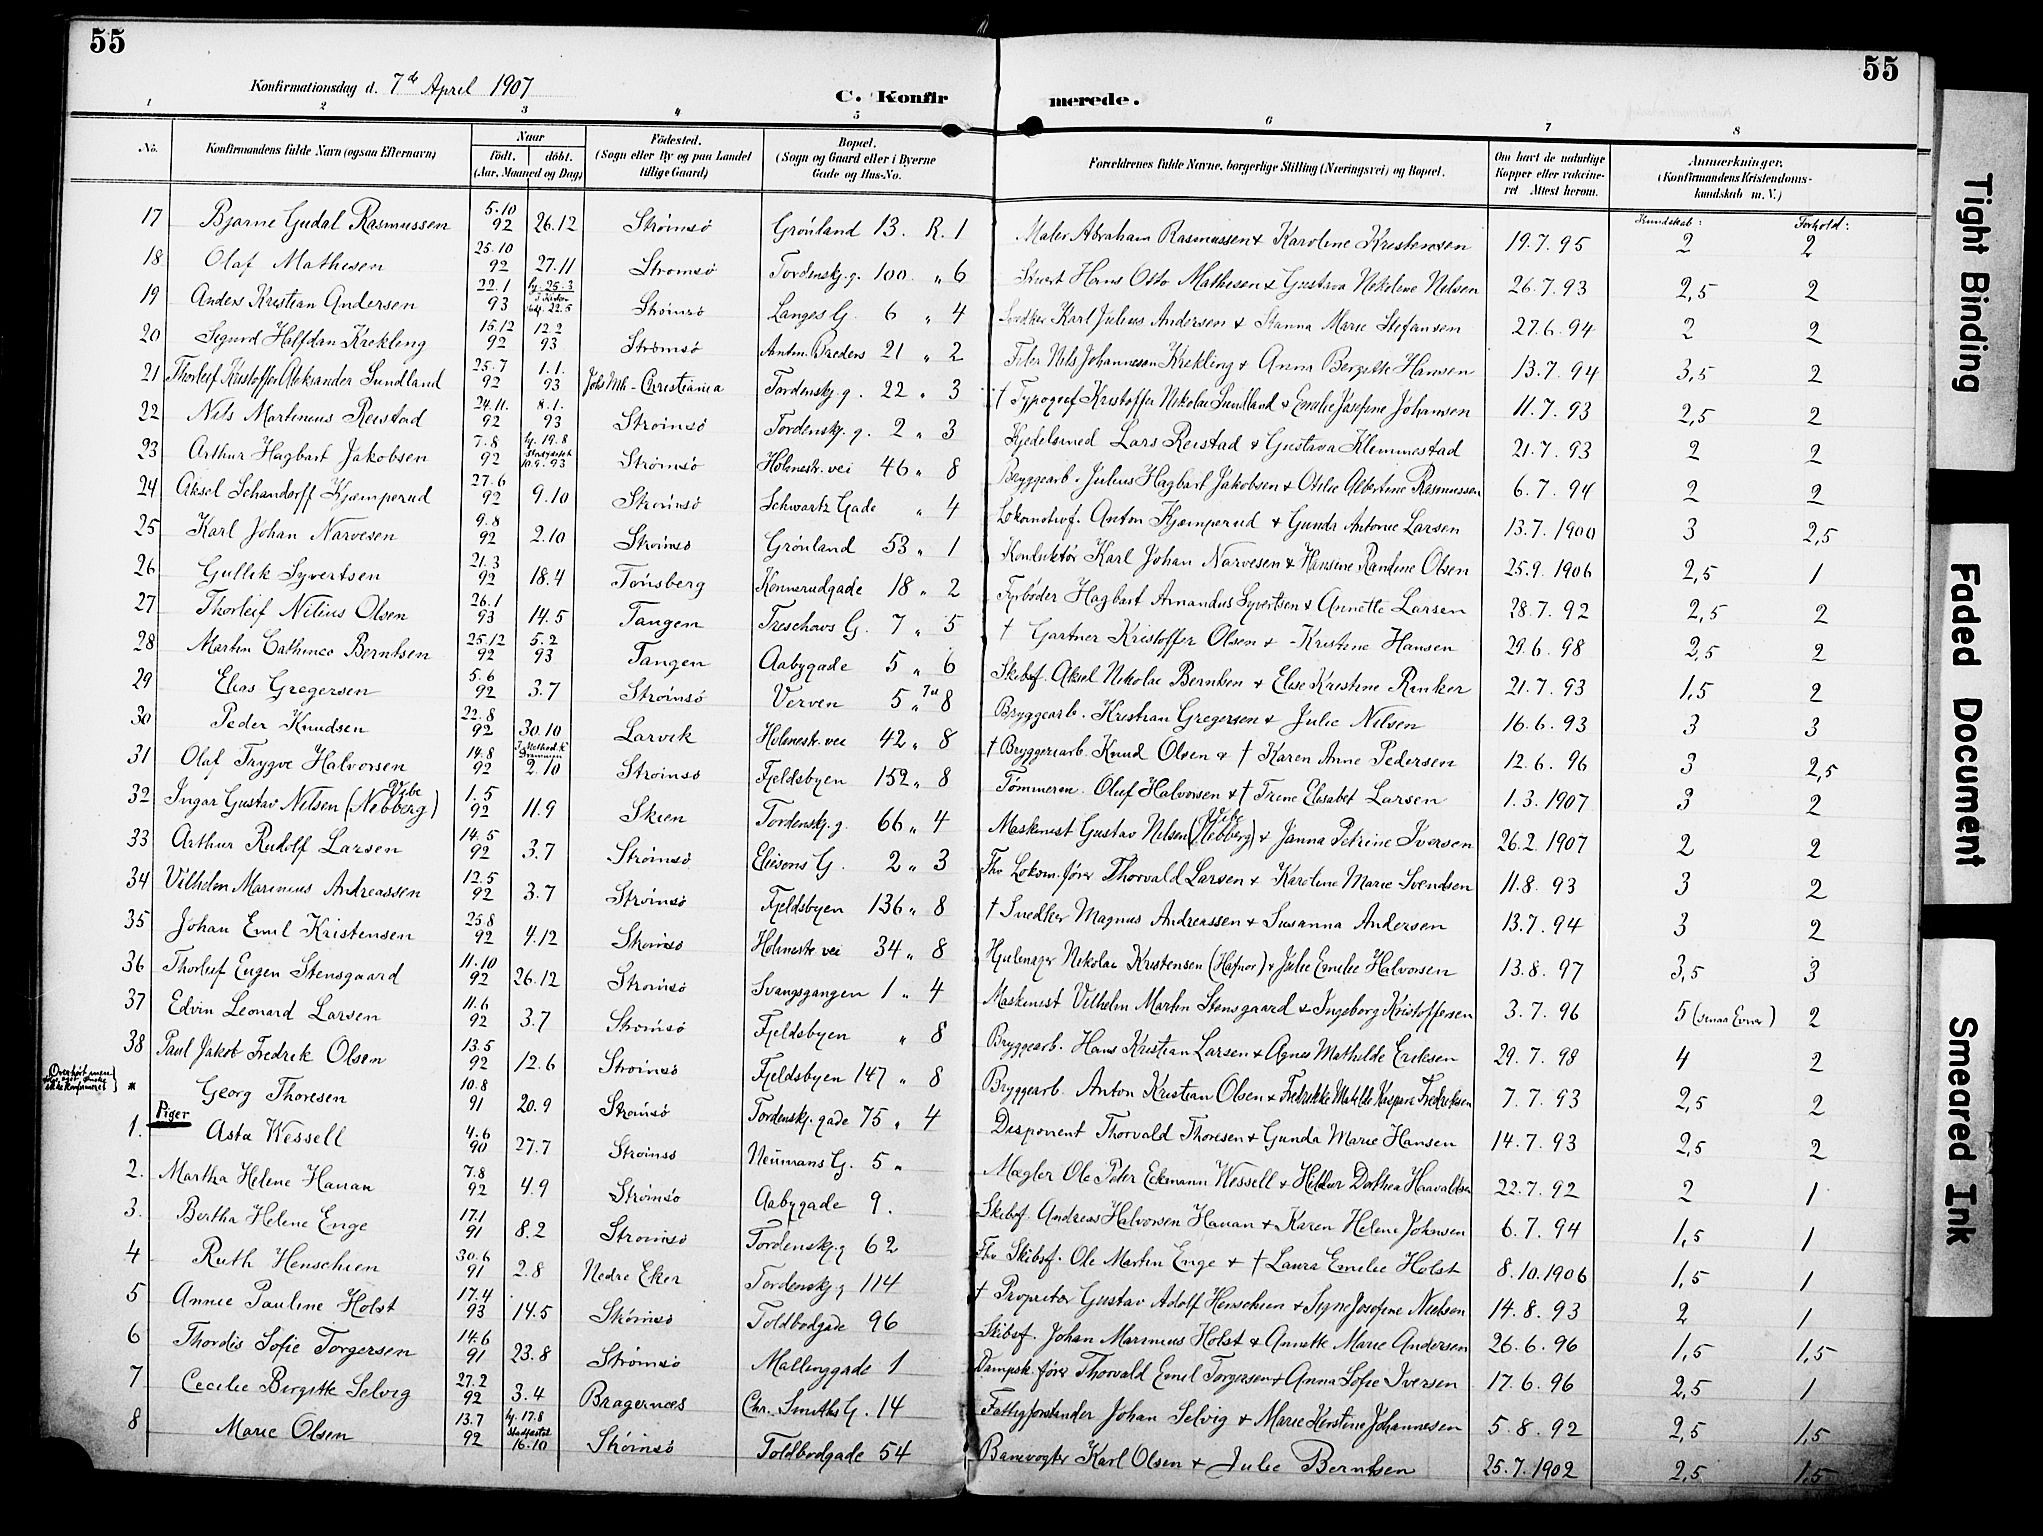 55
55
Konfirmationsdag d. 7de April 1907
C. Konfirmerede.
1 2 3 4 5 6 7 8
No.
Konfirmandens fulde Navn (ogsaa Efternavn)
Naar
födt. döbt.
(Aar, Maaned og Dag)
Födested.
(Sogn eller By og paa Landet
tillige Gaard)
Bopæl.
(Sogn og Gaard eller i Byerne
Gade og Hus-No.
Forældrenes fulde Navne, borgerlige Stilling (Næringsvei) og Bopæl.
Om havt de naturlige
Kopper eller vaccine-
ret Attest herom.
Anmerkninger.
(Konfirmandens Kristendoms-
kundskab m. V.)
Kundskab: Forhold:
17 Bjarne Gudal Rasmussen 5.10 92 26.12 Strømsö Grønland 13. R. 1 Maler Abraham Rasmussen & Karoline Kristensen 19.7.95 2 2
18 Olaf Mathesen 25.10 92 27.11 Strømsö Tordenskj.g. 100 " 6 Hans Otto Mathesen & Gustava Nikoline Nilsen 26.7.93 2,5 2
19 Anders Kristian Andersen 22.1 93 hj. 25.3 22.5 Strømsö Langes G. 6 " 4 Snedker Karl Julius Andersen & Hanna Marie Stefansen 27.6.94 2 2
20 Sigurd Halfdan Krekling 15.12 92 12.2 93 Strømsö Antm. Bredens 21 " 2 Filer Nils Johannesen Krekling & Anna Bergitte Hansen 13.7.94 3,5 2
21 Thorleif Kristoffer Aleksander Sundland 25.7 92 1.1. 93 Johs Mk - Christiania Tordenskj.g. 22 " 3 † Typograf Kristoffer Nikolai Sundland & Emilie Josefine Johansen 11.7.93 2,5 2
22 Nils Martinius Reistad 24.11. 92 8.1. 93 Strømsö Tordenskj.g. 2 " 3 Kjedelsmed Lars Reistad & Gustava Klemmestad 21.7.93 2 2
23 Arthur Hagbart Jakobsen 7.8 92 hj. 19.8 10.9.93 Strømsö Holmestr. vei 46 " 8 Bryggearb. Julius Hagbart Jakobsen & Otilie Albertine Rasmussen 6.7.94 2 2
24 Aksel Schandorff Kjæmperud 27.6 92 9.10 Strømsö Schwartz Gade " 4 Lokomotivf. Anton Kjæmperud & Gunda Antonie Larsen 13.7.1900 3 2,5
25 Karl Johan Narvesen 9.8 92 2.10 Strømsö Grønland 53 " 1 Konduktör Karl Johan Narvesen & Hansine Randine Olsen 25.9.1906 2,5 1
26 Gullik Syvertsen 21.3 92 18.4 Tønsberg Konnerudgade 18 " 2 Fyrbøder Hagbart Amandus Syvertsen & Annette Larsen 28.7.92 2,5 2
27 Thorleif Nilius Olsen 26.1 93 14.5 Tangen Treschows G. 7 " 5 † Gartner Kristoffer Olsen & Kristine Hansen 29.6.98 2,5 2
28 Martin Cathinco Berntsen 25.12 92 5.2 93 Tangen Aabygade 5 " 6 Skibsf. Aksel Nikolai Berntsen & Elise Kristine Rinker 21.7.93 1,5 2
29 Elias Gregersen 5.6 92 3.7 Strømsö Verven 5 " 8 Bryggearb. Kristian Gregersen & Julie Nilsen 16.6.93 3 3
30 Peder Knudsen 22.8 92 30.10 Larvik Holmestr. vei 42 " 8 † Bryggeriarb. Knud Olsen & † Karen Anne Pedersen 12.6.96 3 2,5
31 Olaf Trygve Halvorsen 14.8 92 I Method. K Drammen 2.10 Strømsö Fjeldsbyen 152 " 8 Tømmerm. Oluf Halvorsen & † Trine Elisabet Larsen 1.3.1907 3 2
32 Ingar Gustav Nilsen (Nebberg) Vibe 1.5 92 11.9 Skien Tordenskj.g. 66 " 4 Maskinist Gustav Nilsen (Nebberg) Vibe & Janna Petrine Iversen 26.2.1907 2 2
33 Arthur Rudolf Larsen 14.5 92 3.7 Strømsö Eliesons G. 2 " 3 Fhv Lokom.fører Thorvald Larsen & Karoline Marie Svendsen 11.8.93 3 2
34 Vilhelm Marinius Andreassen 12.5 92 3.7 Strømsö Fjeldsbyen 136 " 8 † Snedker Magnus Andreassen & Susanna Andersen 13.7.94 3 2
35 Johan Emil Kristensen 25.8 92 4.12 Strømsö Holmestr. vei 34 " 8 Hjulmager Nikolai Kristensen (Hafnor) & Julie Emilie Halvorsen 13.8.97 3,5 3
36 Thorleif Eugen Stensgaard 11.10 92 26.12 Strømsö Svangsgangen 1 " 4 Maskinist Vilhelm Martin Stensgaard & Ingeborg Kristoffersen 3.7.96 5 (smaa Evner) 2
37 Edvin Leonard Larsen 11.6 92 3.7 Strømsö Fjeldsbyen " 8 Bryggearb. Hans Kristian Larsen & Agnes Mathilde Eriksen 29.7.98 4 2
38 Paul Jakob Fredrik Olsen 13.5 92 12.6 Strømsö Fjeldsbyen 147 " 8 Bryggearb. Anton Kristian Olsen & Fredrikke Matilde Kaspara Fredriksen 7.7.93 2,5 2
Overhørt men
ikke konfirmeret
* Georg Thoresen 10.8 91 20.9 Strømsö Tordenskj. gade 75 " 4 Disponent Thorvald Thoresen & Gunda Marie Hansen 14.7.93 2,5 2
Piger
1. Asta Wessell 4.6 90 27.7 Strømsö Neumans G. 5 " Mægler Ole Peter Eckmann Wessell & Hildur Dorthea Haavaldsen 22.7.92 2 1
2. Martha Helene Hanan 7.8 92 4.9 Strømsö Aabygade 9. Skibsf. Andreas Halvorsen Hanan & Karen Helene Johnsen 6.7.94 1,5 1
3. Bertha Helene Enge 17.1 91 8.2 Strømsö Tordenskj.g 62 Fhv Skibsf. Ole Martin Enge & † Laura Emilie Holst 8.10.1906 1,5 1
4 Ruth Henschien 30.6 91 2.8 Nedre Eker Tordenskj.g 114 † Proprietær Gustav Adolf Henschien & Signe Josefine Nielsen 14.8.93 2 1
5 Annie Pauline Holst 17.4 93 14.5 Strømsö Toldbodgade 96 Skibsf. Johan Marinius Holst & Annette Marie Andersen 26.6.96 1,5 1,5
6 Thordis Sofie Torgersen 14.6 91 23.8 Strømsö Mallinggade 1 Dampsk. fører Thorvald Emil Torgersen & Anna Sofie Iversen 17.6.96 2,5 1
7 Cecilie Birgitte Selvig 27.2 92 3.4 Bragernæs Chr. Smiths G. 14 Fattigforstander Johan Selvig & Marie Kerstine Johannesen 5.8.92 2,5 1,5
8 Marie Olsen 13.7 92 hj. 17.8 Stadfæstet 16.10 Strømsö Toldbodgade 54 Banevogter Karl Olsen & Julie Berntsen 25.7.1902 2,5 1,5
Tight Binding
Faded Document
Smeared Ink